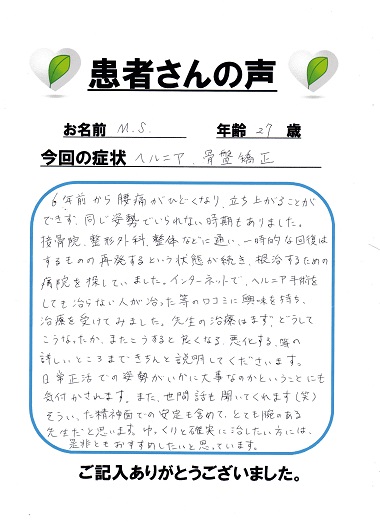 患者さんの声
お名前 M.S. 年齢 27 歳
今回の症状 ヘルニア、骨盤矯正
6年前から腰痛がひどくなり、立ち上がることが
できず、同じ姿勢でいられない時期もありました。
接骨院、整形外科、整体などに通い、一時的な回復は
するものの再発するという状態が続き、根治するための
病院を探していました。インターネットで、ヘルニア手術を
しても治らない人が治った等の口コミに興味を持ち、
治療を受けてみました。先生の治療はまず、どうして
こうなったか、またこうすると良くなる、悪化する、等の
詳しいところまできちんと説明してくださいます。
日常生活での姿勢がいかに大事なのかということにも
気付かされます。また、世間話も聞いてくれます(笑)
そういった精神面での安定も含めて、とても腕のある
先生だと思います。ゆっくりと確実に治したい方には、
是非ともおすすめしたいと思っています。
ご記入ありがとうございました。